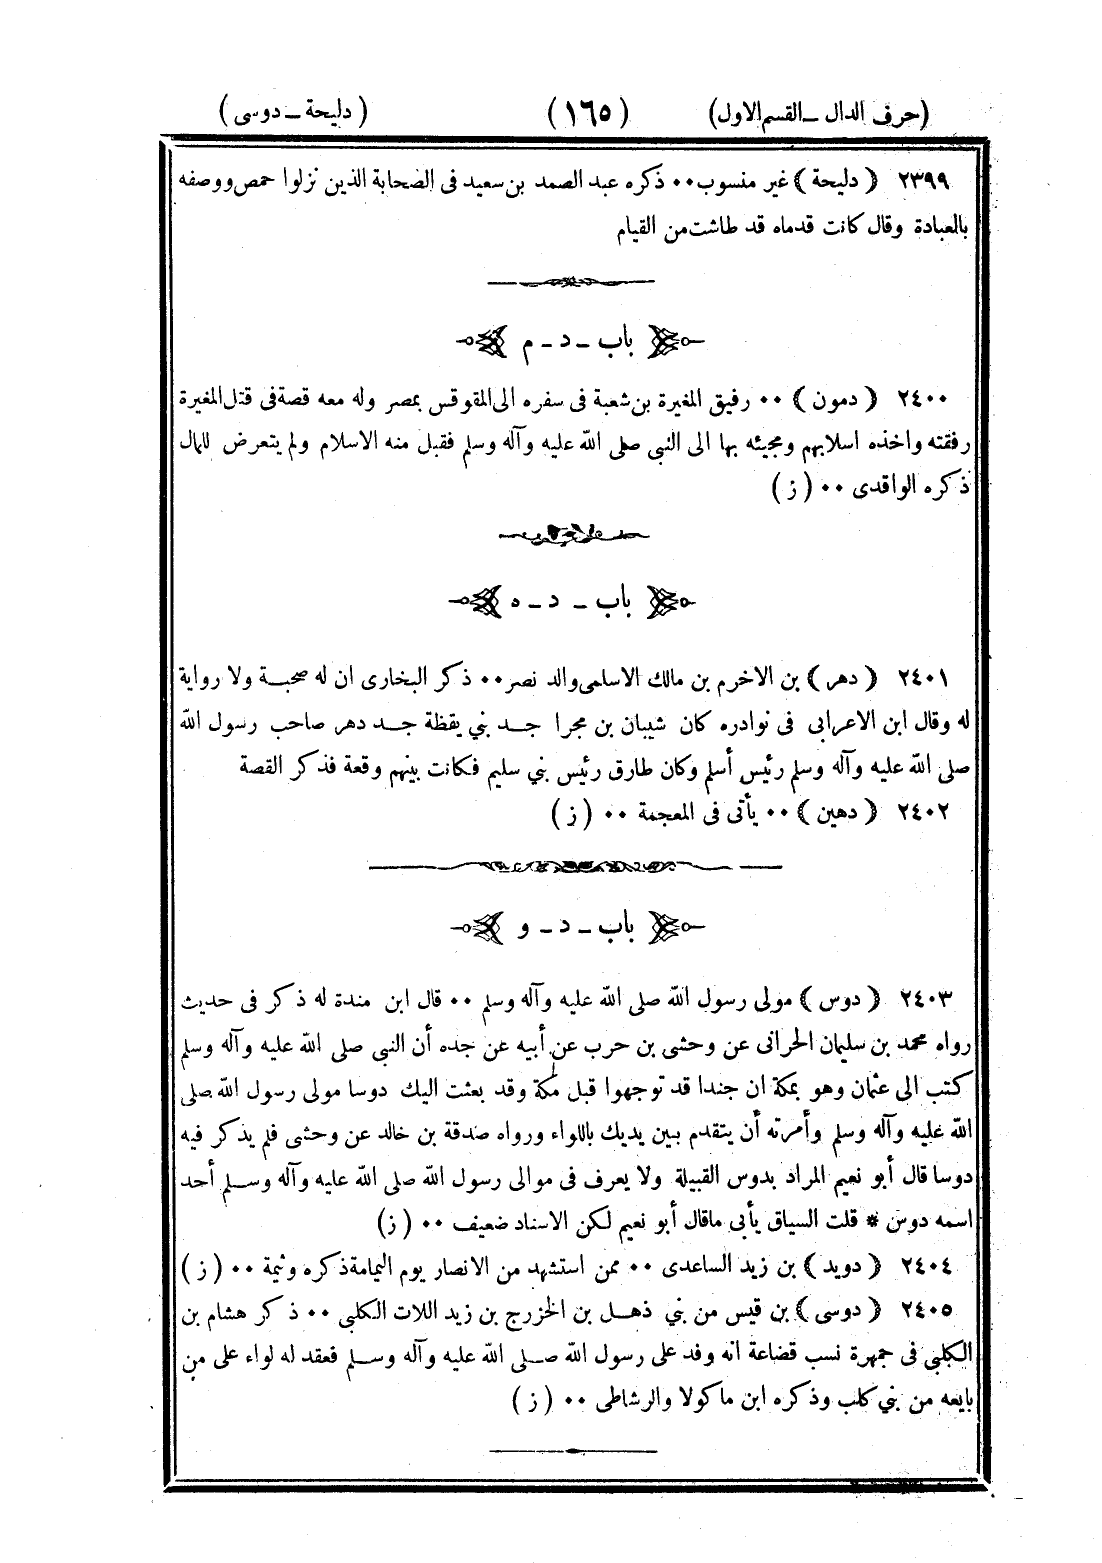 (حرف الدال ـ القسم الاول) (١٦٥) (دليحة ـ دوسى)
٢٣٩٩ (دليحة) غير منسوب ٠٠ ذكره عبد الصمد بن سعيد فى الصحابة الذين نزلوا حمص ووصفه
بالعبادة وقال كانت قدماه قد طاشت من القيام
باب ـ د ـ م
٢٤٠٠ (دمون) ٠٠ رفيق المغيرة بن شعبة فى سفره الى المقوقس بمصر وله معه قصة فى قتل المغيرة
رفقته واخذه اسلابهم ومجيئه بها الى النبي صلى الله عليه وآله وسلم فقبل منه الاسلام ولم يتعرض للمال
ذكره الواقدى ٠٠ (ز)
باب ـ د ـ ه
٢٤٠١ (دهر) بن الاخرم بن مالك الاسلمى والد نصر ٠٠ ذكر البخارى ان له صحبة ولا رواية
له وقال ابن الاعرابى فى نوادره كان شيبان بن مجرا جد بني يقظة جد دهر صاحب رسول الله
صلى الله عليه وآله وسلم رئيس أسلم وكان طارق رئيس بني سليم فكانت بينهم وقعة فذكر القصة
٢٤٠٢ (دهين) ٠٠ يأتى فى المعجمة ٠٠ (ز)
باب ـ د ـ و
٢٤٠٣ (دوس) مولى رسول الله صلى الله عليه وآله وسلم ٠٠ قال ابن مندة له ذكر فى حديث
رواه محمد بن سليمان الحرانى عن وحشى بن حرب عن أبيه عن جده أن النبي صلى الله عليه وآله وسلم
كتب الى عثمان وهو بمكة ان جندا قد توجهوا قبل مكة وقد بعثت اليك دوسا مولى رسول الله صلى
الله عليه وآله وسلم وأمرته أن يتقدم بين يديك باللواء ورواه صدقة بن خالد عن وحشى فلم يذكر فيه
دوسا قال أبو نعيم المراد بدوس القبيلة ولا يعرف فى موالى رسول الله صلى الله عليه وآله وسلم أحد
اسمه دوس * قلت السياق يأبى ماقال أبو نعيم لكن الاسناد ضعيف ٠٠ (ز)
٢٤٠٤ (دويد) بن زيد الساعدى ٠٠ ممن استشهد من الانصار يوم اليمامة ذكره وثيمة ٠٠ (ز)
٢٤٠٥ (دوسى) بن قيس من بني ذهل بن الخزرج بن زيد اللات الكلبي ٠٠ ذكر هشام بن
الكلبي فى جمهرة نسب قضاعة انه وفد على رسول الله صلى الله عليه وآله وسلم فعقد له لواء على من
بايعه من بني كلب وذكره ابن ماكولا والرشاطى ٠٠ (ز)